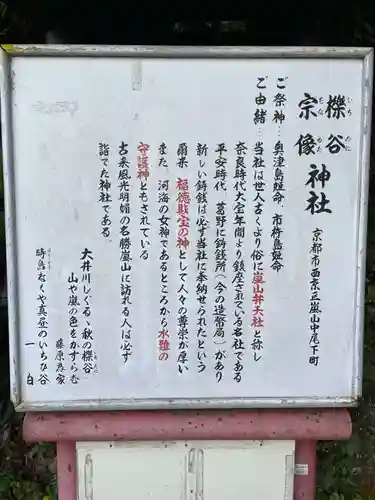 櫟谷
いちたに
宗像神社
むなかた
京都市西京区嵐山中尾下町
ご祭神…奥津島姫命、市杵島姫命
ご由緒…当社は世人古くより俗に嵐山弁天社と称し
奈良時代大宝年間より鎮座されている名社である
平安時代、葛野に鋳銭所(今の造幣局)があり
新しい鋳銭は必ず当社に奉納せられたという
爾来、福徳財宝の神として人々の尊崇が厚い
また、河海の女神であるところから水難の
守護神ともされている
古来風光明媚の名勝嵐山に訪れる人は必ず
詣でた神社である。
大井川しぐるゝ秋の櫟谷
山や嵐の色をかすらむ
藤原為家
時鳥なくや真昼のいちひ谷
一白